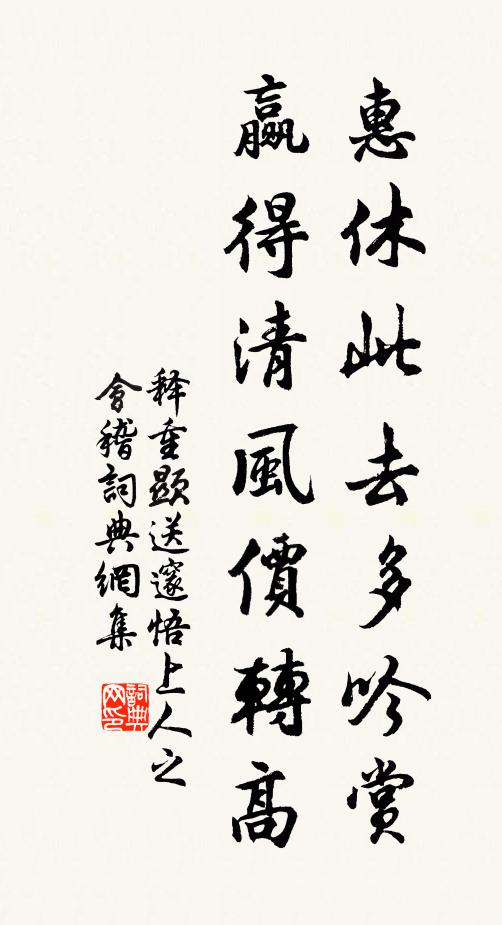 惠休此去多吟賞
贏得清風價轉高
释重顯送邃悟上人之
會稽詞典網集
詞典网印